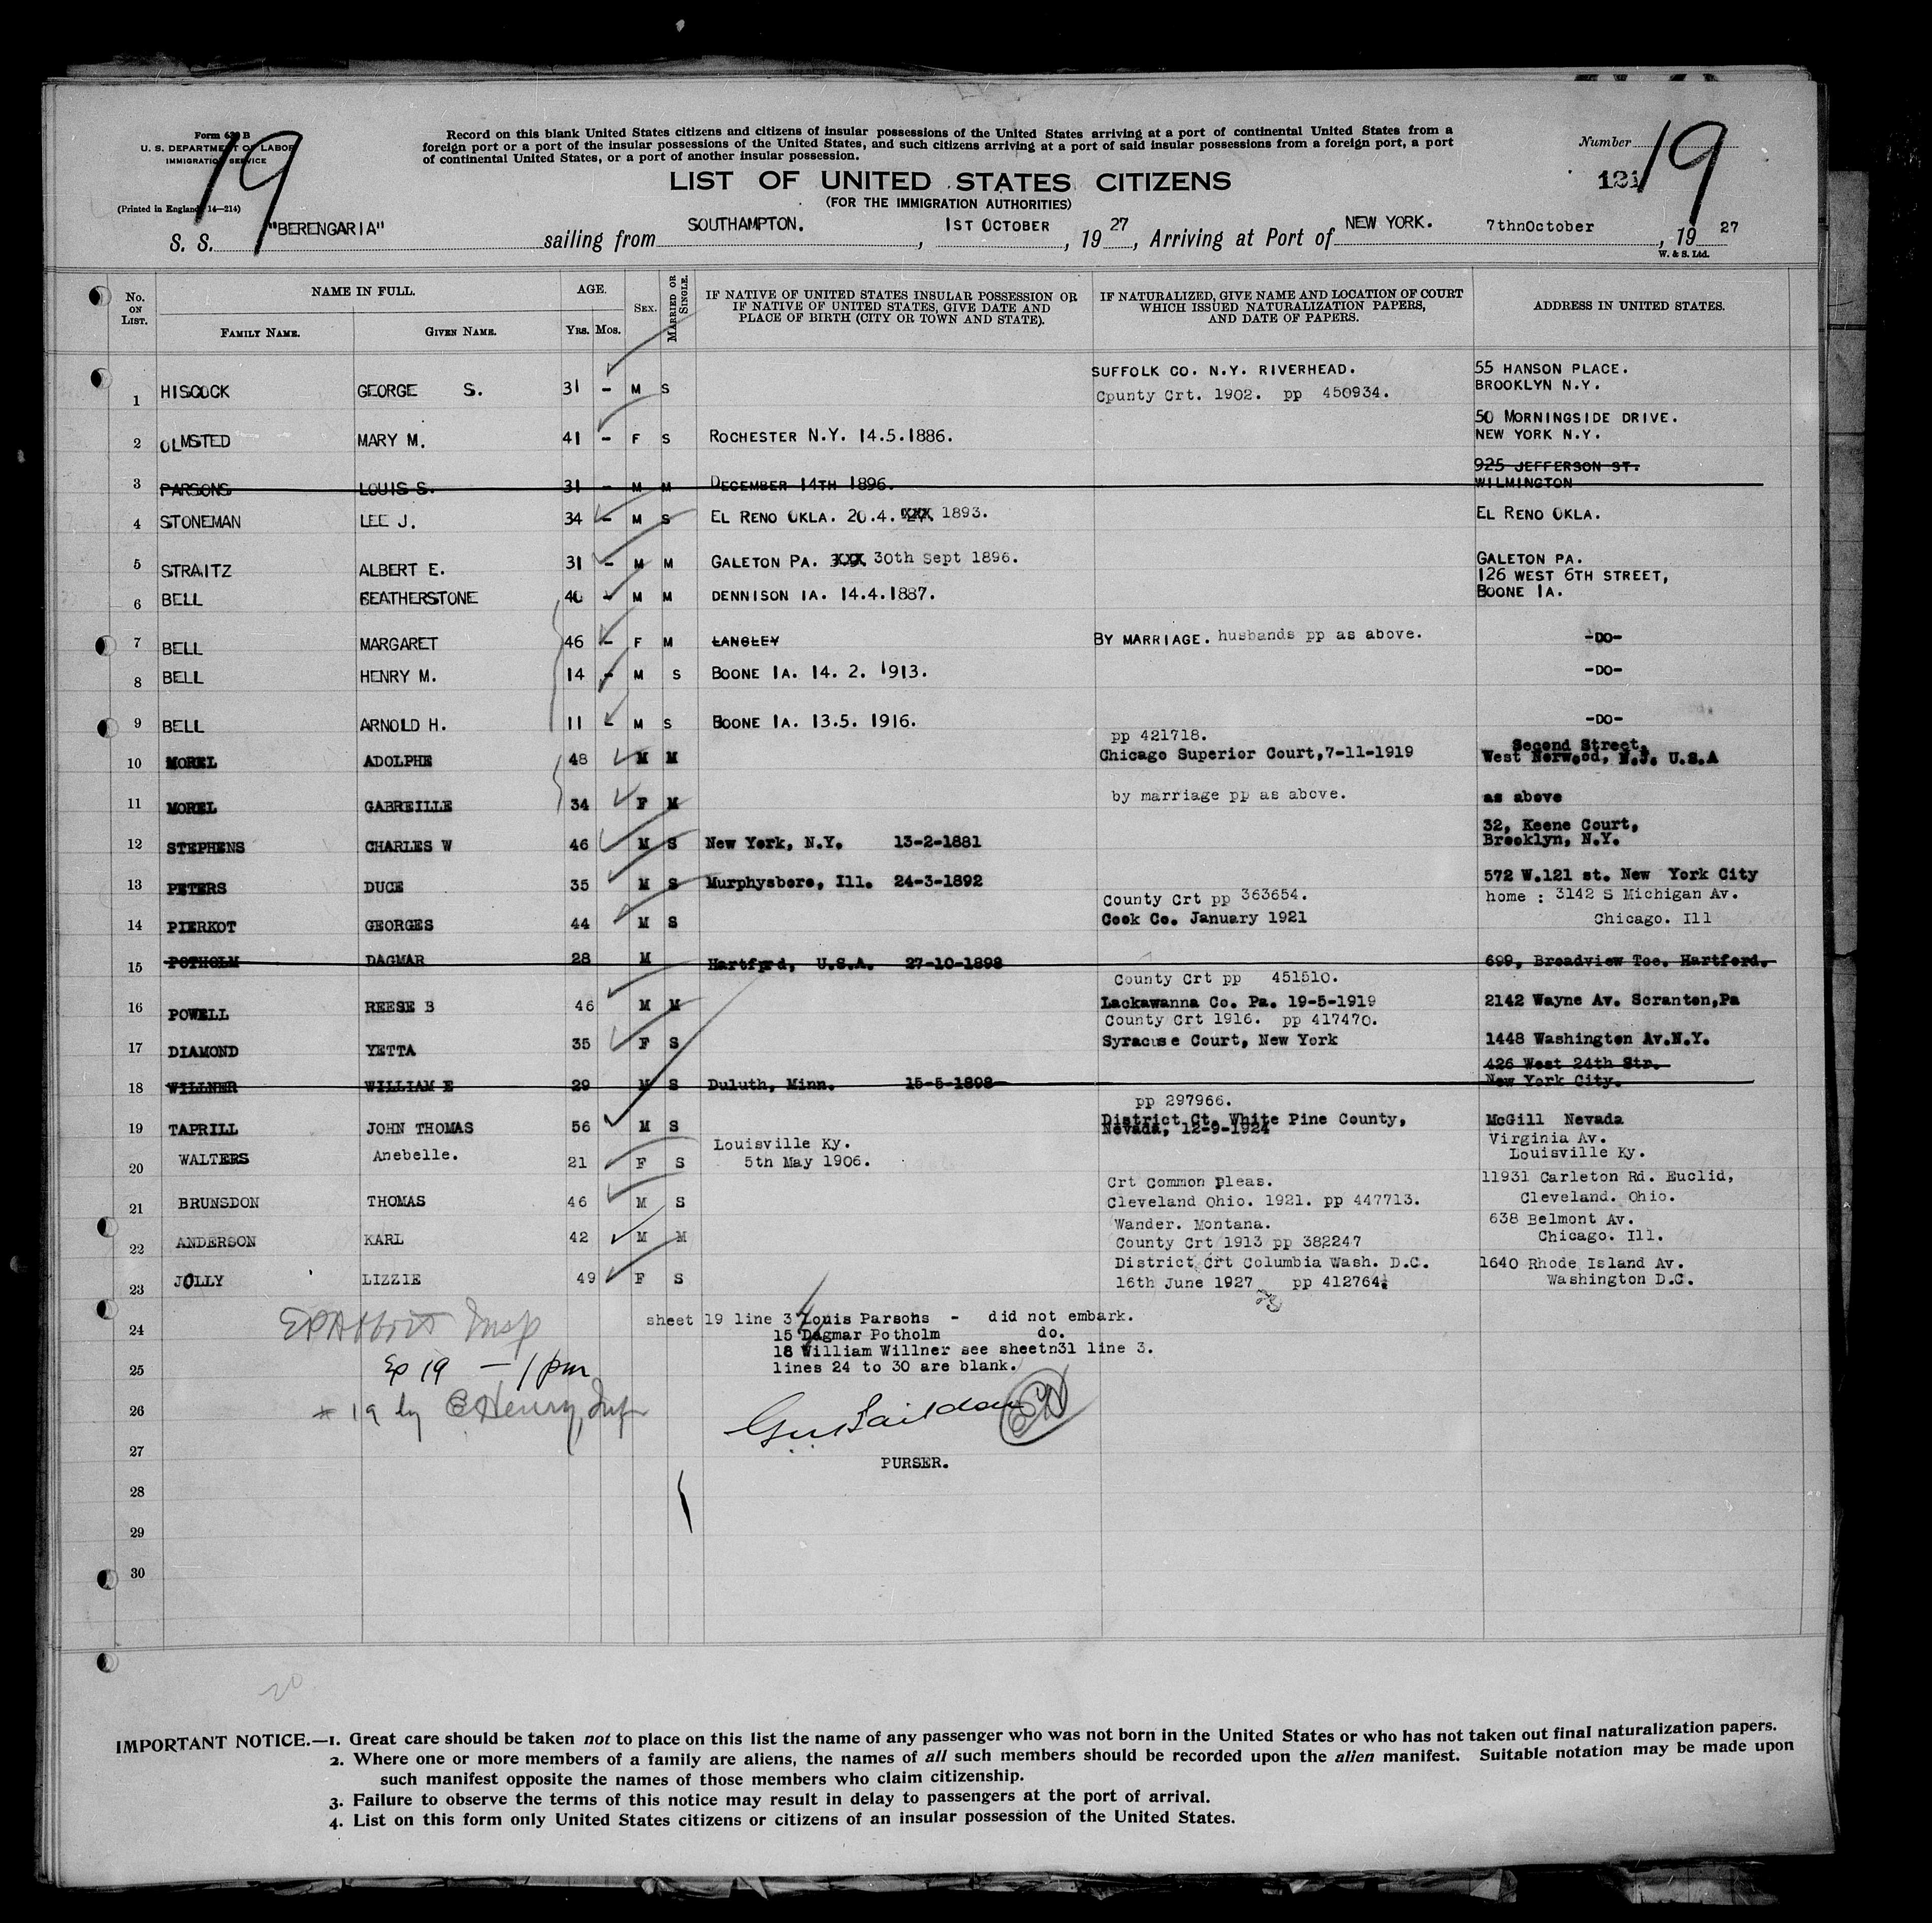 Form 630 B
U. S. DEPARTMENT OF LABOR
IMMIGRATION SERVICE
(Printed in England 14—214)
19
Record on this blank United States citizens and citizens of insular possessions of the United States arriving at a port of continental United States from a
foreign port or a port of the insular possessions of the United States, and such citizens arriving at a port of said insular possessions from a foreign port, a port
of continental United States, or a port of another insular possession.
Number 19
121
LIST OF UNITED STATES CITIZENS
(FOR THE IMMIGRATION AUTHORITIES)
S. S. "BERENGARIA" sailing from SOUTHAMPTON. , 1ST OCTOBER , 19 27 , Arriving at Port of NEW YORK. 7thnOctober , 19 27
W. & S. Ltd.
No. ON LIST. NAME IN FULL. AGE. SEX. MARRIED OR SINGLE. IF NATIVE OF UNITED STATES INSULAR POSSESSION OR IF NATIVE OF UNITED STATES, GIVE DATE AND PLACE OF BIRTH (CITY OR TOWN AND STATE). IF NATURALIZED, GIVE NAME AND LOCATION OF COURT WHICH ISSUED NATURALIZATION PAPERS, AND DATE OF PAPERS. ADDRESS IN UNITED STATES.
FAMILY NAME. GIVEN NAME. YRS. MOS.
SUFFOLK CO. N.Y. RIVERHEAD. 55 HANSON PLACE.
1 HISCOCK GEORGE S. 31 - M S Cpunty Crt. 1902. pp 450934. BROOKLYN N.Y.
50 MORNINGSIDE DRIVE.
2 OLMSTED MARY M. 41 - F S ROCHESTER N.Y. 14.5.1886. NEW YORK N.Y.
925 JEFFERSON ST.
3 PARSONS LOUIS S. 31 - M M DECEMBER 14TH 1896. WILMINGTON
4 STONEMAN LEE J. 34 - M S EL RENO OKLA. 20.4. XXX 1893. EL RENO OKLA.
5 STRAITZ ALBERT E. 31 - M M GALETON PA. XXX 30th Sept 1896. GALETON PA.
126 WEST 6TH STREET,
6 BELL FEATHERSTONE 40 - M M DENNISON IA. 14.4.1887. BOONE IA.
7 BELL MARGARET 46 - F M LANGLEY BY MARRIAGE. husbands pp as above. -DO-
8 BELL HENRY M. 14 - M S BOONE IA. 14. 2. 1913. -DO-
9 BELL ARNOLD H. 11 - M S BOONE IA. 13.5. 1916. -DO-
pp 421718. Second Street,
10 MOREL ADOLPHE 48 M M Chicago Superior Court,7-11-1919 West Norwood, N.J. U.S.A
11 MOREL GABREILLE 34 F M by marriage pp as above. as above
32, Keene Court,
12 STEPHENS CHARLES W 46 M S New York, N.Y. 13-2-1881 Brooklyn, N.Y.
13 PETERS DUCE 35 M S Murphysbore, Ill. 24-3-1892 572 W.121 st. New York City
County Crt pp 363654. home : 3142 S Michigan Av.
14 PIERKOT GEORGES 44 M S Cook Co. January 1921 Chicago. Ill
15 POTHOLM DAGMAR 28 M Hartfprd, U.S.A. 27-10-1898 699, Broadview Tce. Hartford.
County Crt pp 451510.
16 POWELL REESE B 46 M M Lackawanna Co. Pa. 19-5-1919 2142 Wayne Av. Scranton,Pa
County Crt 1916. pp 417470.
17 DIAMOND YETTA 35 F S Syracuse Court, New York 1448 Washington Av.N.Y.
426 West 24th Str.
18 WILLNER WILLIAM E 29 M S Duluth, Minn. 15-5-1898 New York City.
pp 297966.
19 TAPRILL JOHN THOMAS 56 M S District Ct. White Pine County, McGill Nevada
Nevada, 12-9-1924
Louisville Ky. Virginia Av.
20 WALTERS Anebelle. 21 F S 5th May 1906. Louisville Ky.
Crt Common pleas. 11931 Carleton Rd. Euclid,
21 BRUNSDON THOMAS 46 M S Cleveland Ohio. 1921. pp 447713. Cleveland. Ohio.
Wander. Montana. 638 Belmont Av.
22 ANDERSON KARL 42 M M County Crt 1913 pp 382247 Chicago. Ill.
District Crt Columbia Wash. D.C. 1640 Rhode Island Av.
23 JOLLY LIZZIE 49 F S 16th June 1927 pp 412764. Washington D.C.
sheet 19 line 3 Louis Parsons - did not embark.
24 Insp 15 Dagmar Potholm do.
18 William Willner see sheetn31 line 3.
25 19 — 1 pm lines 24 to 30 are blank.
26 19 by Henry, Insp
27 PURSER.
28
29
30
20
IMPORTANT NOTICE.—1. Great care should be taken not to place on this list the name of any passenger who was not born in the United States or who has not taken out final naturalization papers.
2. Where one or more members of a family are aliens, the names of all such members should be recorded upon the alien manifest. Suitable notation may be made upon
such manifest opposite the names of those members who claim citizenship.
3. Failure to observe the terms of this notice may result in delay to passengers at the port of arrival.
4. List on this form only United States citizens or citizens of an insular possession of the United States.